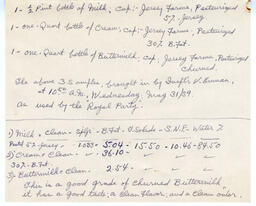 1 - ½ Pint bottle of Milk, Cap:- Jersey Farms, Pasteurized
5% Jersey.
1 - one. Quart bottle of Cream; Cap:- Jersey Farms, Pasteurized
30% B. Fat.
1 - one. Quart bottle of Buttermilk. Cap; Jersey Farms, Pasteurized
Churned.
The above 3 Samples, brought in by Inspt'r
at 10 A.M., Wednesday, May 31/39.
as used by the Royal Party.
1) Milk - Clean - SpGr - B.Fat - T.Solids - S.N.F. - Water %
5% Jersey - 5.04 - 15.50 - 10.46 - 84.50
2) Cream - Clean - 36.10 -
30% B.Fat.
3) Buttermilk - Clean 2.54 -
This is a good grade of Churned Buttermilk
it has a good taste, a Clean flavor, and a Clean odor.